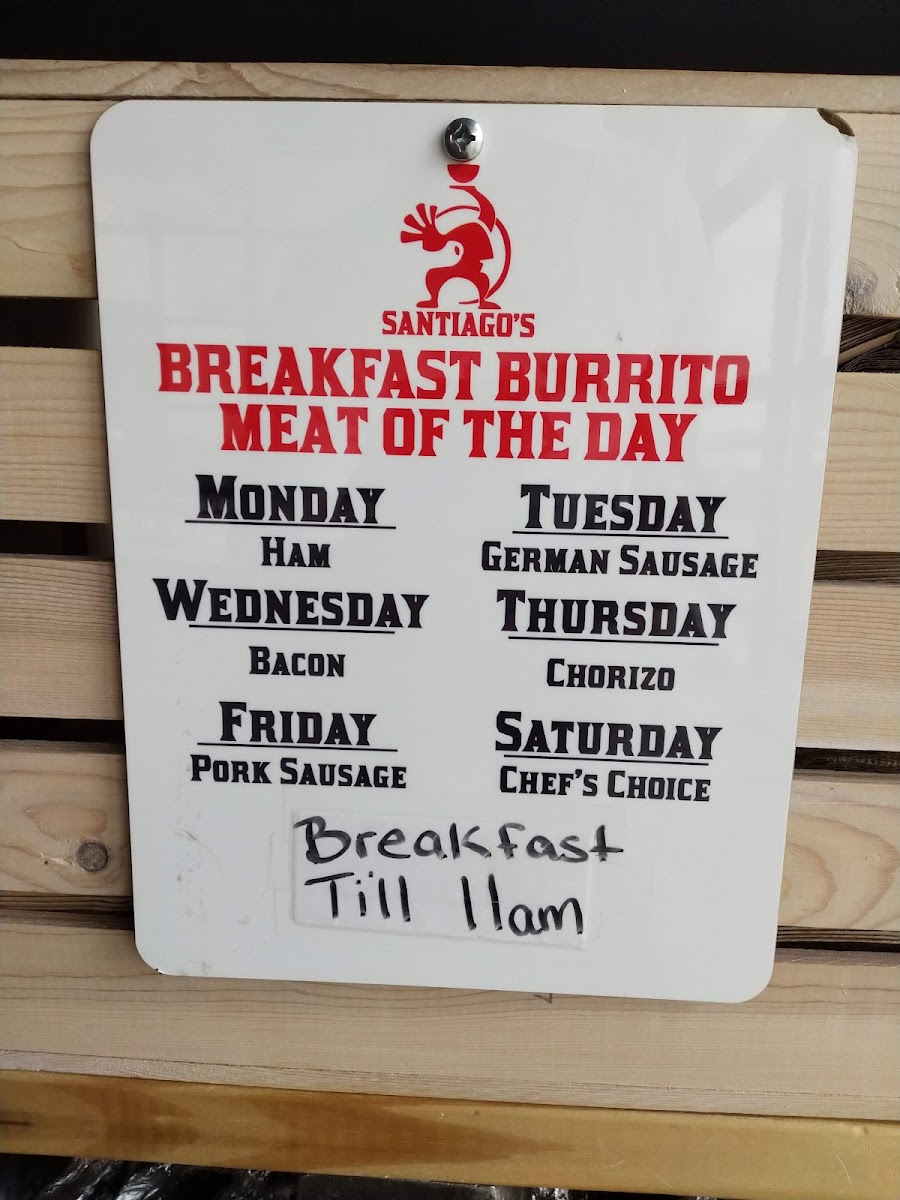 SANTIAGO'S
BREAKFAST BURRITO
MEAT OF THE DAY
MONDAY
HAM
TUESDAY
GERMAN SAUSAGE
WEDNESDAY
BACON
THURSDAY
CHORIZO
FRIDAY
PORK SAUSAGE
SATURDAY
CHEF'S CHOICE
Breakfast
Till 11am